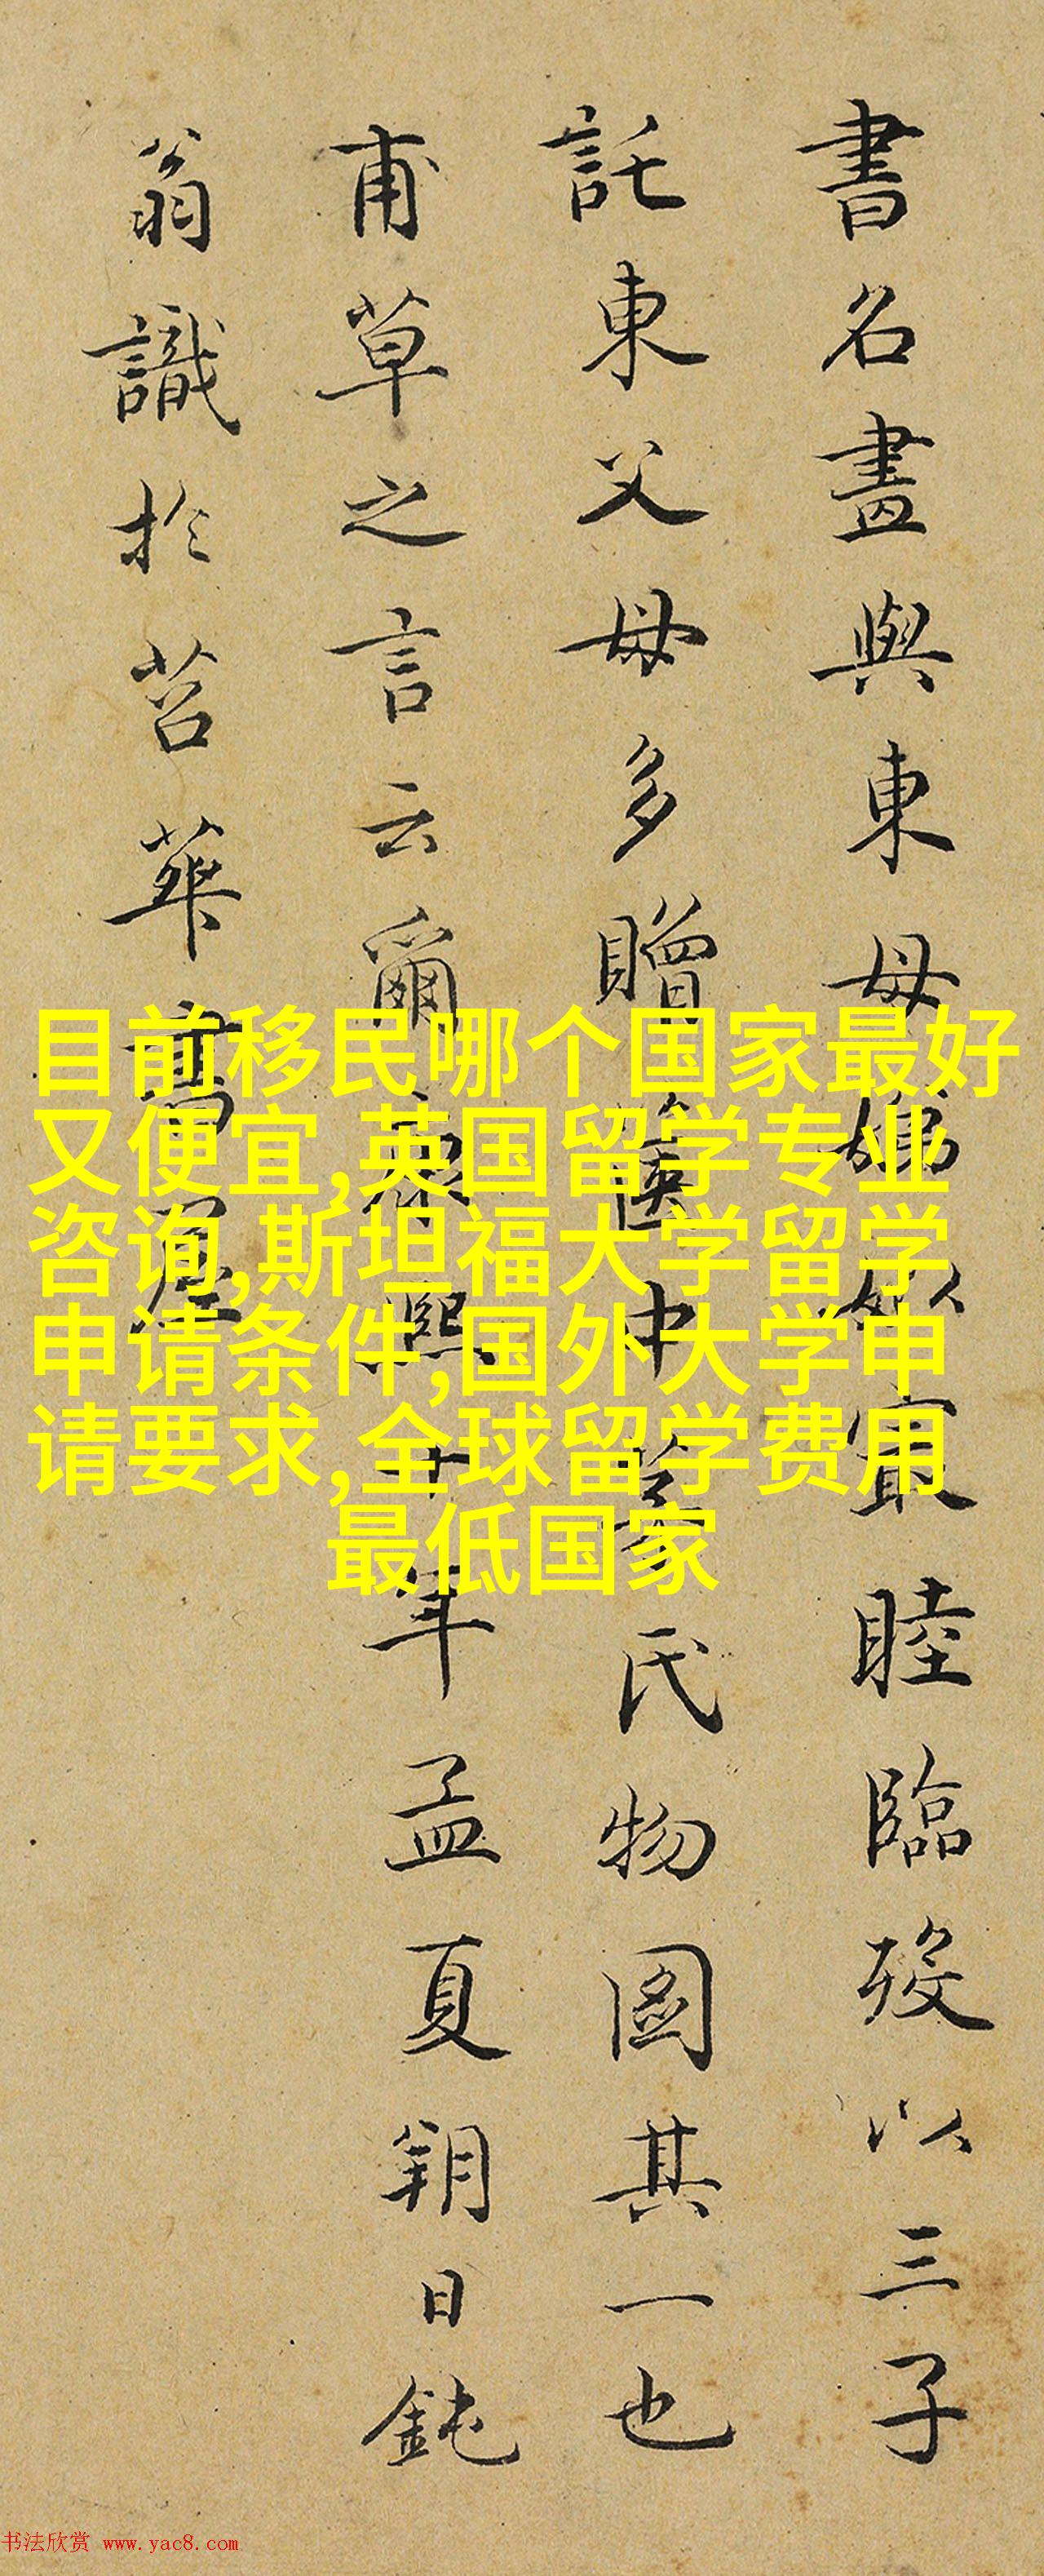 書名畫與東母娣姒㝡睦臨歿以三子
託東父母多贈中氏物圖其一也
甫草之言云爾康熙十年孟夏朔日鈍
翁識於苕華書屋
目前移民哪个国家最好
又便宜,英国留学专业
咨询,斯坦福大学留学
申请条件,国外大学申
请要求,全球留学费用
最低国家
书法欣赏 www.yac8.com